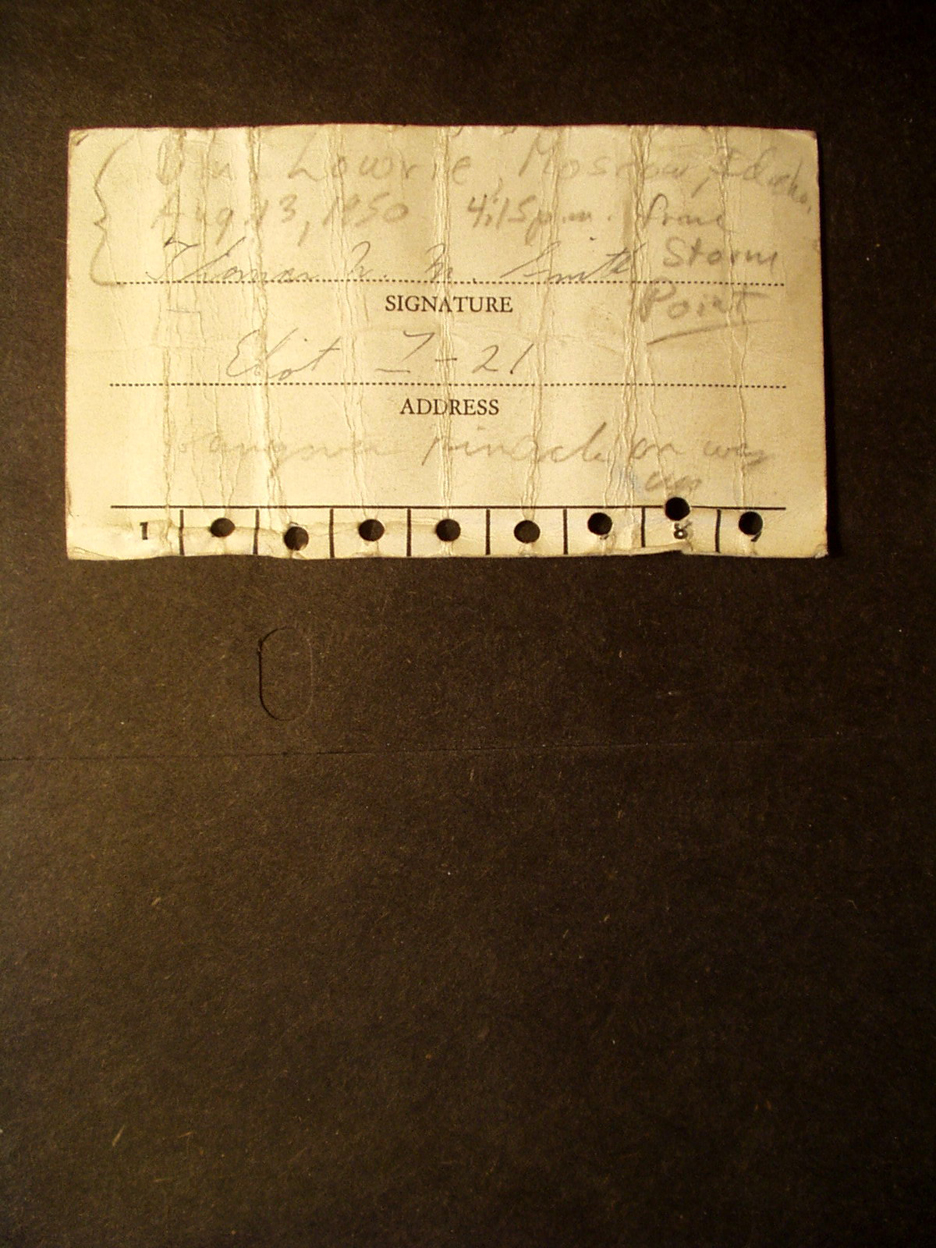 Lowrie, Moscow, Idaho.
Aug. 13, 1950 4:15 p.m. from
Storm
Thomas M. Smith
SIGNATURE
Point
Eliot I-21
ADDRESS
pinnacle on way
up
1 8